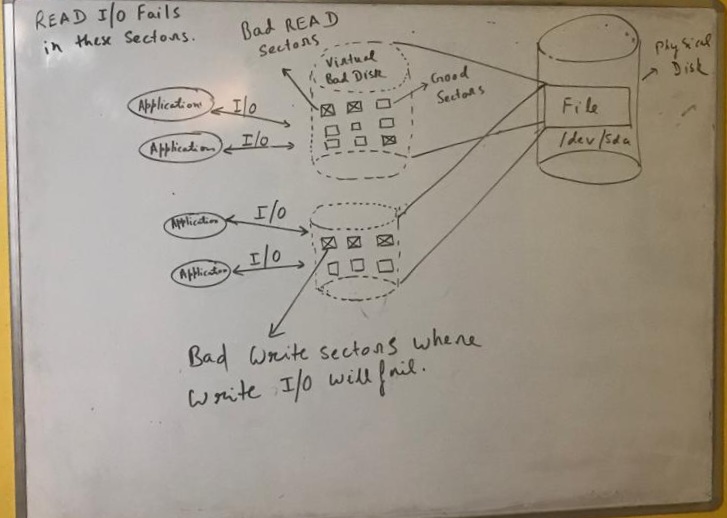 READ I/O Fails
in these Sectors.
Bad READ
Sectors
Virtual
Bad Disk
Good
Sectors
Physical
Disk
File
/dev/sda
Application
I/O
Application
I/O
Application
I/O
Application
I/O
Bad Write sectors where
Write I/O will fail.